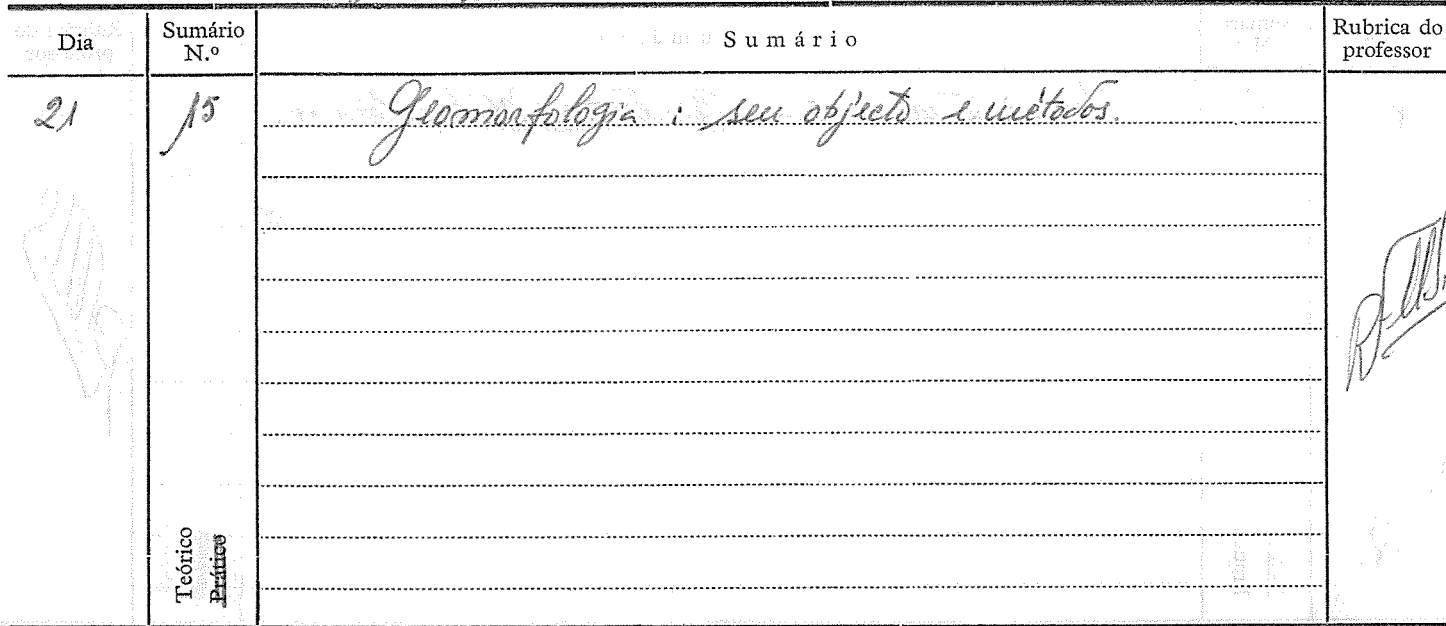 Dia Sumário N.º Sumário Rubrica do professor
21 15 Geomorfologia : seu objecto e métodos.
Teórico
Prático